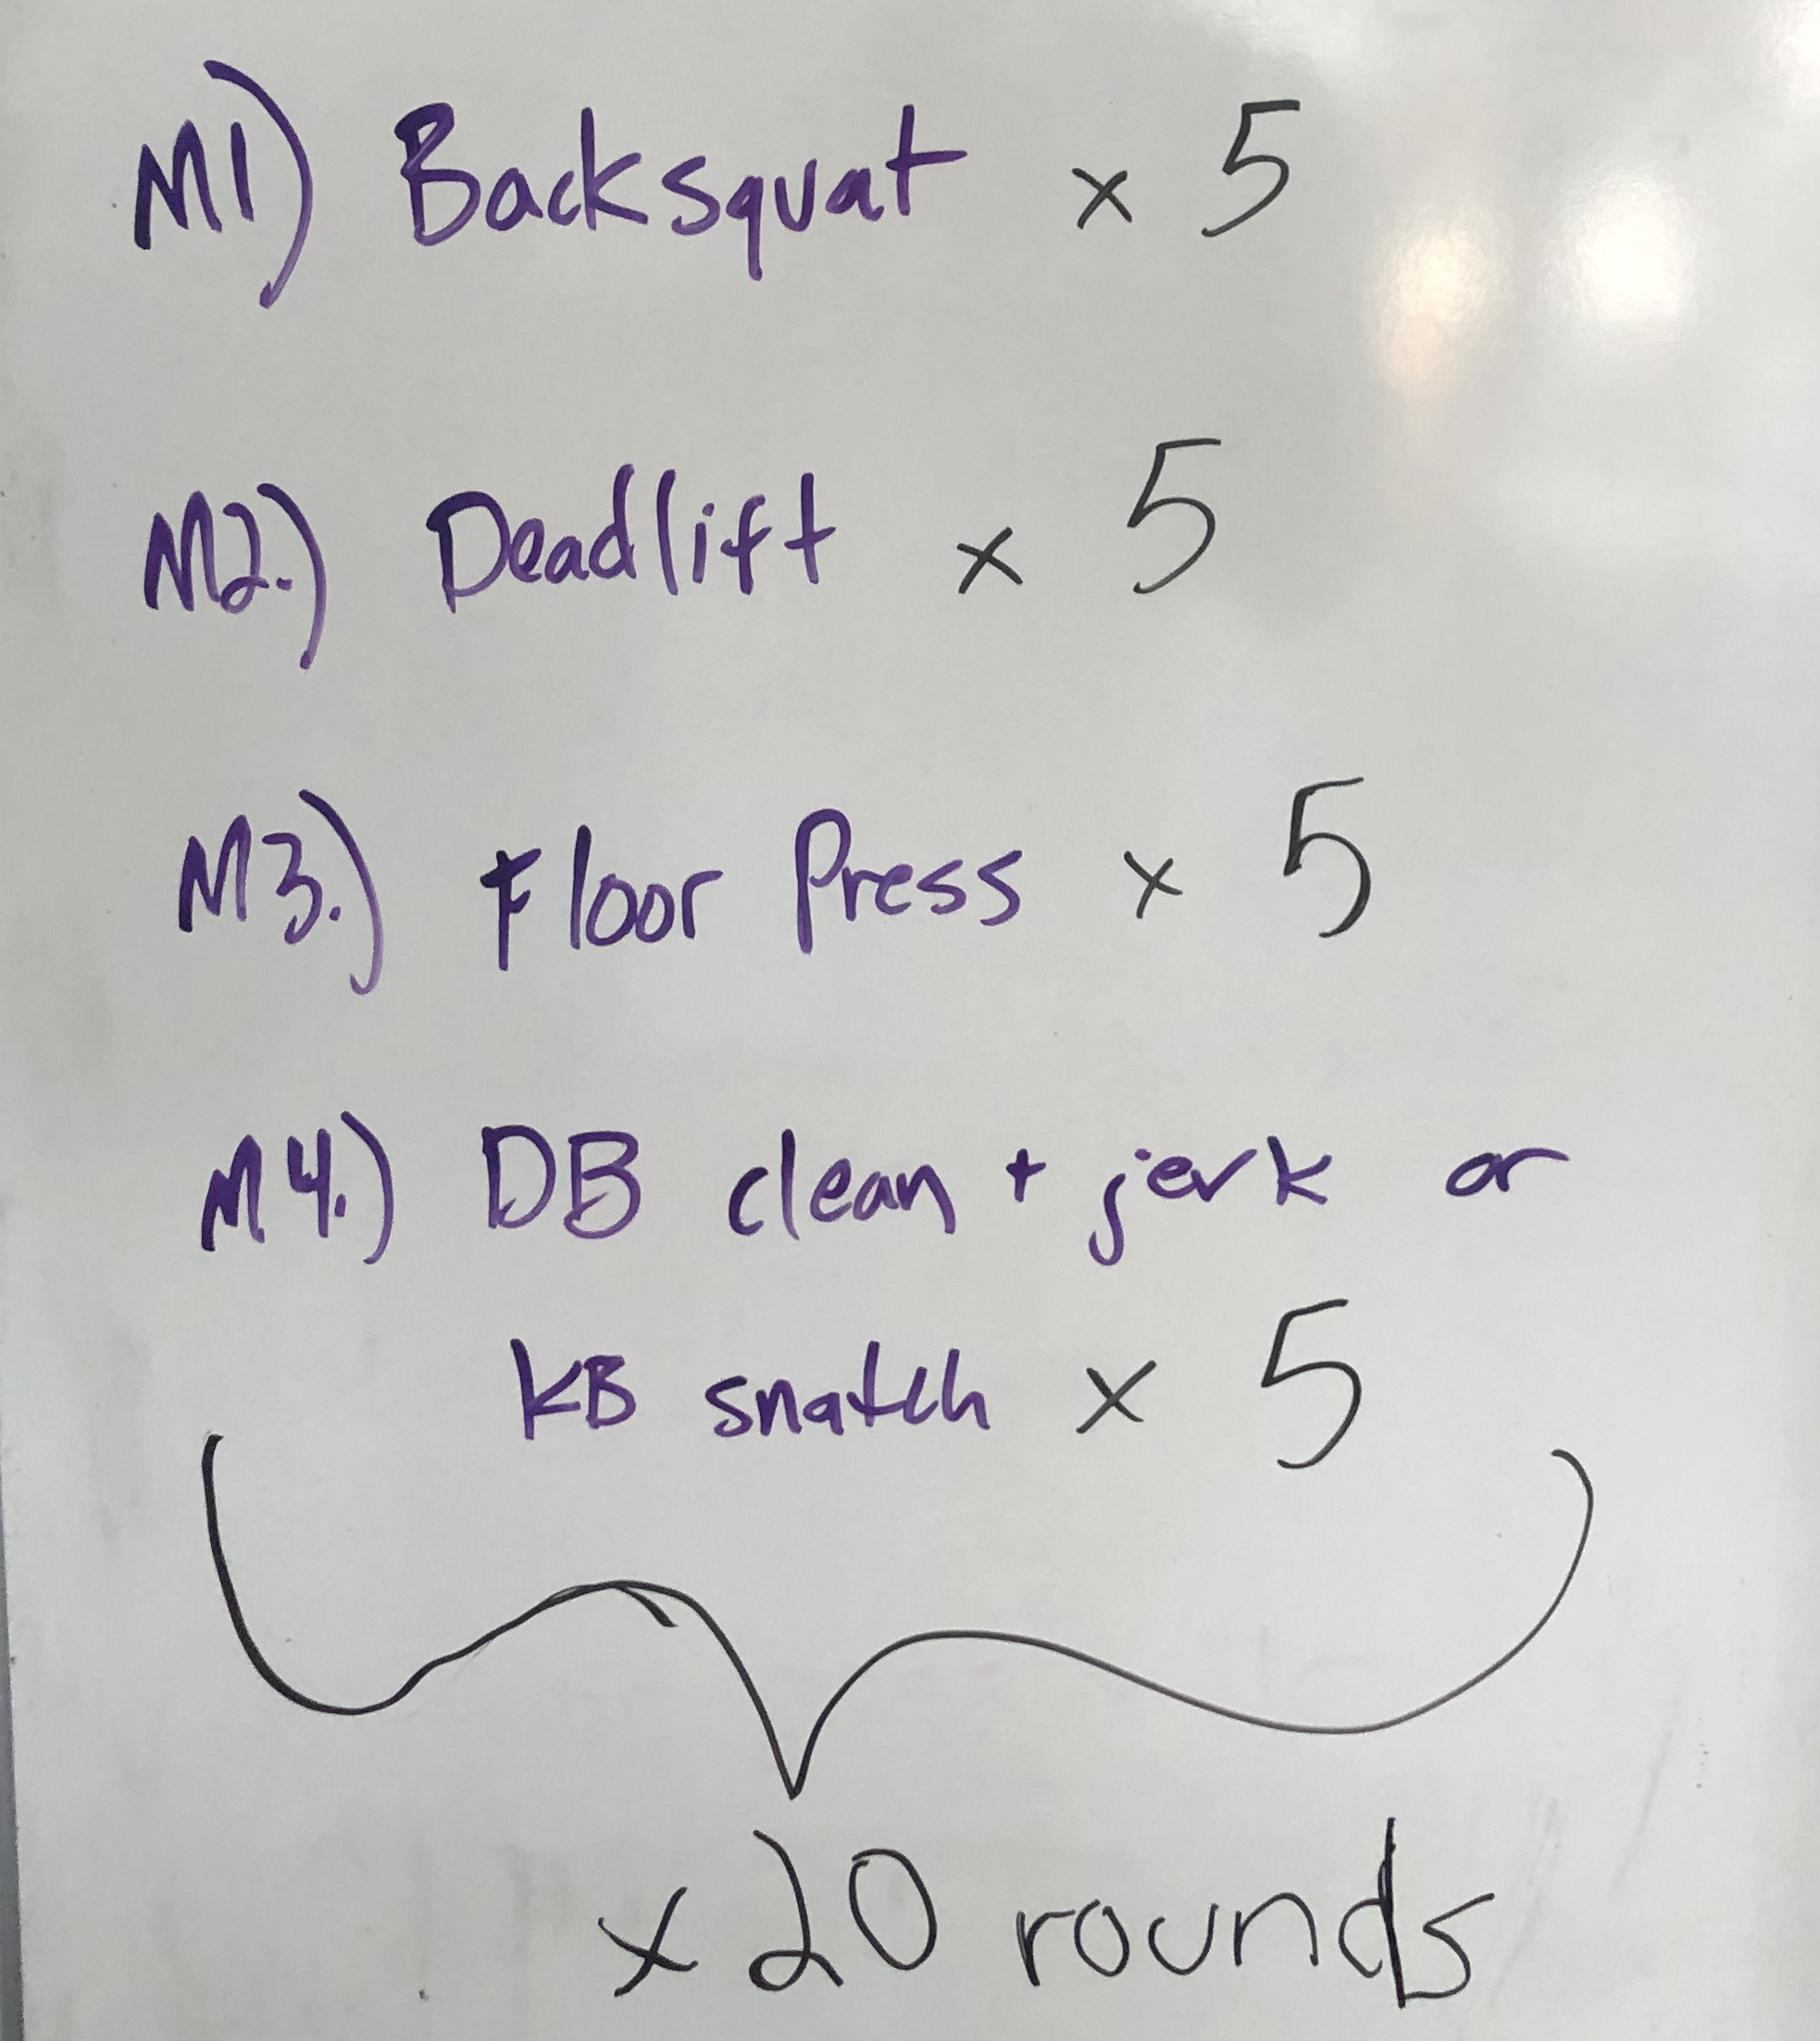 M1) Backsquat x 5
M2.) Deadlift x 5
M3.) Floor Press x 5
M4.) DB clean + jerk or
KB snatch x 5
x 20 rounds